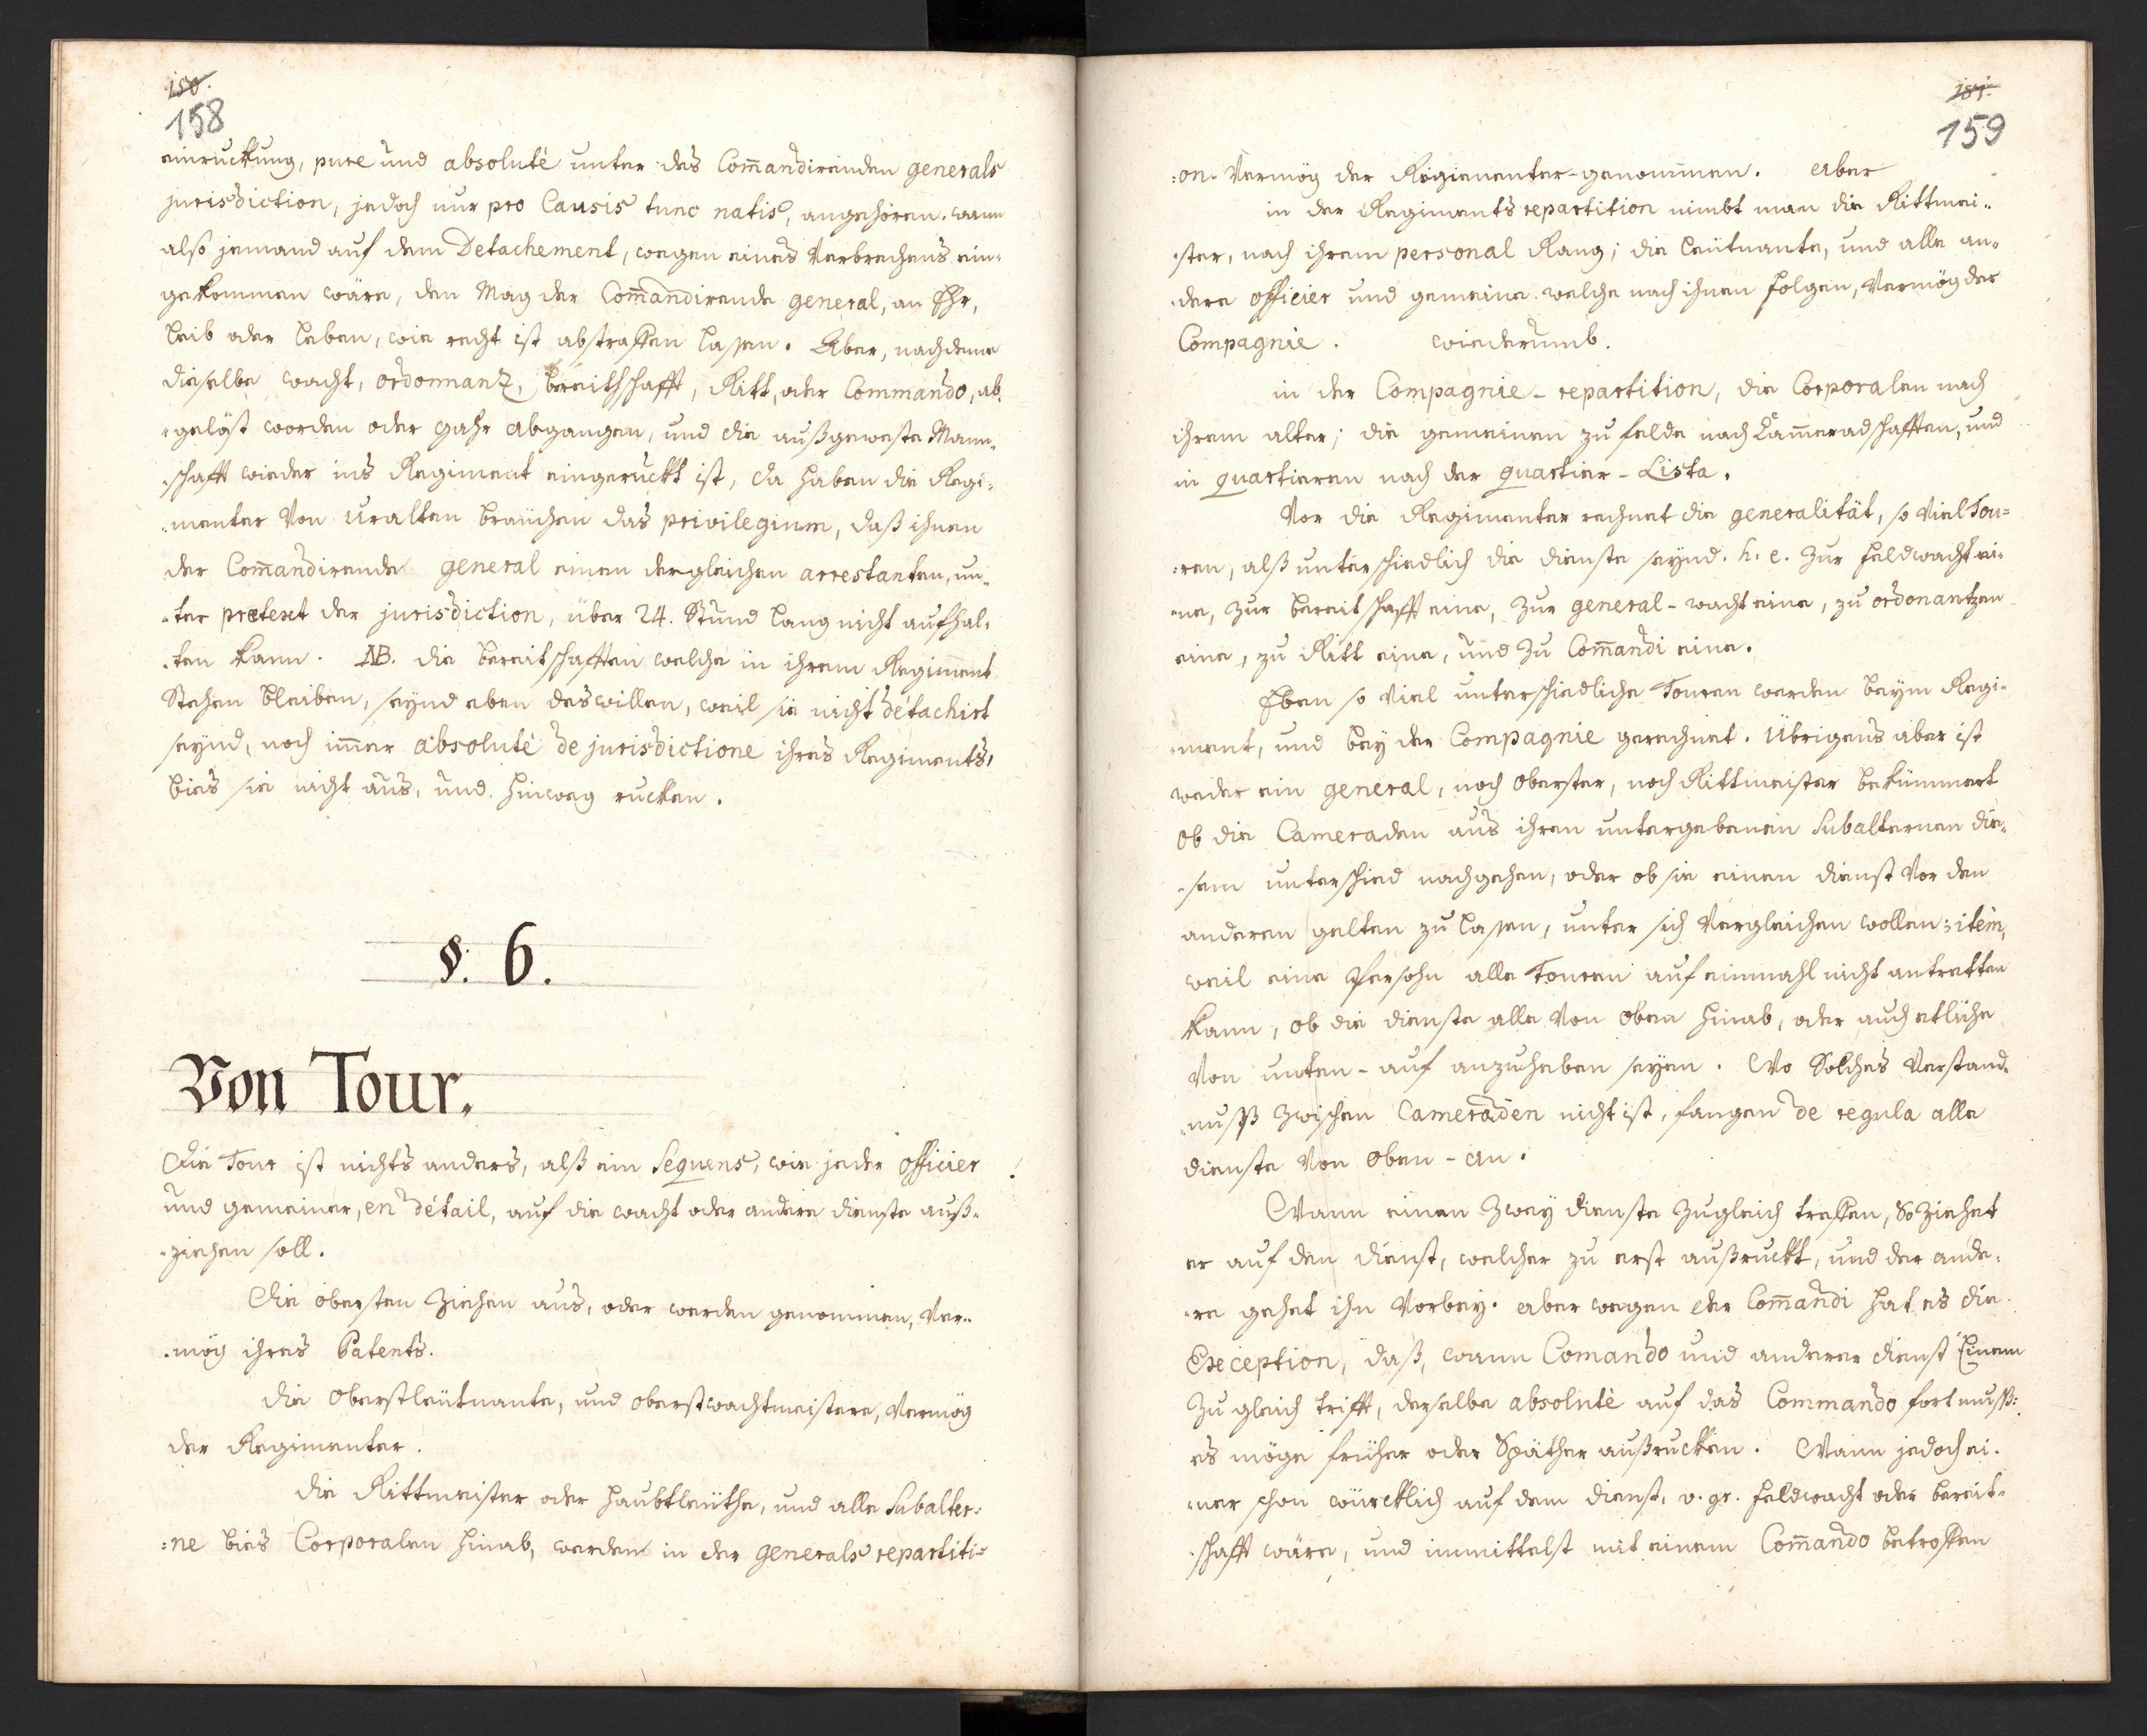 150.
158
einruckung, pure und absolutè unter des Com̄andirenden generals
jurisdiction, jedoch nur pro Causis tunc natis, angehören. wann
also jemand auf dem Detachement, wegen eines Verbrechens ein-
gekommen wäre, den mag der Com̄andirende general, an Ehr,
Leib oder Leben, wie recht ist abstraffen lassen. Aber, nachdeme
dieselbe wacht, ordonnanz, bereithschafft, Ritt, oder Commando, ab-
-gelöst worden oder gahr abgangen, und die außgeweste Mann-
-schafft wieder ins Regiment eingeruckt ist, da haben die Regi-
-menter Von uralten bräuchen das privilegium, daß ihnen
der Com̄andirende general einen dergleichen arrestanten, un-
-ter prætext der jurisdiction, über 24. Stund lang nicht aufhal-
-ten kann. NB. die bereitschafften welche in ihrem Regim̄ent
Stehen bleiben, seynd eben deswillen, weil sie nicht détachirt
seynd, noch im̄er absolutè de jurisdictione ihres Regiments,
bies sie nicht aus, und hinweg rucken.
§. 6.
Von Tour.
Die Tour ist nichts anders, alß ein Sequens, wie jeder officier
und gemeiner, en détail, auf die wacht oder andere dienste auß-
-ziehen soll.
Die obersten ziehen aus, oder werden genommen, Ver-
-mög ihres Patents.
die Oberstleutnante, und oberstwachtmeistere, Vermög
der Regimenter.
die Rittmeister oder haubtleüthe, und alle Subalter-
:ne bies Corporalen hinab, werden in der generals repartiti-
151.
159
:on- Vermög der Regimenter-genommen. Aber
in der Regiments repartition nimbt man die Rittmei-
-ster, nach ihrem personal Rang; die Leütnante, und alle an-
-dere officier und gemeine welche nach ihnen folgen, Vermög der
Compagnie. wiederumb.
in der Compagnie-repartition, die Corporalen nach
ihrem alter; die gemeinen zu felde nach Cam̄eradschafften, und
in quartieren nach der quartier-Lista.
Vor die Regimenter rechnet die generalität, so Viel Tou-
-ren, alß unterschiedlich die dienste seynd. h. e. zur feldwacht ei-
-ne, zur bereitschafft eine, zur general-wacht eine, zu ordonantzen
eine, zu Ritt eine, und zu Com̄andi eine.
Eben so Viel unterschiedliche Touren werden beym Regi-
-ment, und bey der Compagnie gerechnet. Übrigens aber ist
weder ein general, noch Oberster, noch Rittmeister bekümmert
ob die Cameraden aus ihren untergebenen Subalternen die-
-sem unterschied nachgehen, oder ob sie einen dienst Vor den
anderen gelten zu lassen, unter sich Vergleichen wollen: item,
weil eine Persohn alle Touren auf einmahl nicht antretten
kann, ob die dienste alle Von oben hinab, oder auch etliche
Von unten-auf anzuheben seyen. Wo Solches Verstand-
-nuß zwischen Cameraden nicht ist, fangen de regula alle
dienste Von oben-an.
Wann einen zwey dienste zugleich treffen, So ziehet
er auf den dienst, welcher zu erst außruckt, und der ande-
-re gehet ihn Vorbey. aber wegen der Com̄andi hat es die
Exception, daß, wann Comando und anderer dienst Einem
zugleich trifft, derselbe absolutè auf das Commando fort muß:
es möge früher oder Späther außrucken. Wann jedoch ei-
-ner schon würcklich auf dem dienst, v. gr. feldwacht oder bereit-
-schafft wäre, und immittelst mit einem Com̄ando betroffen